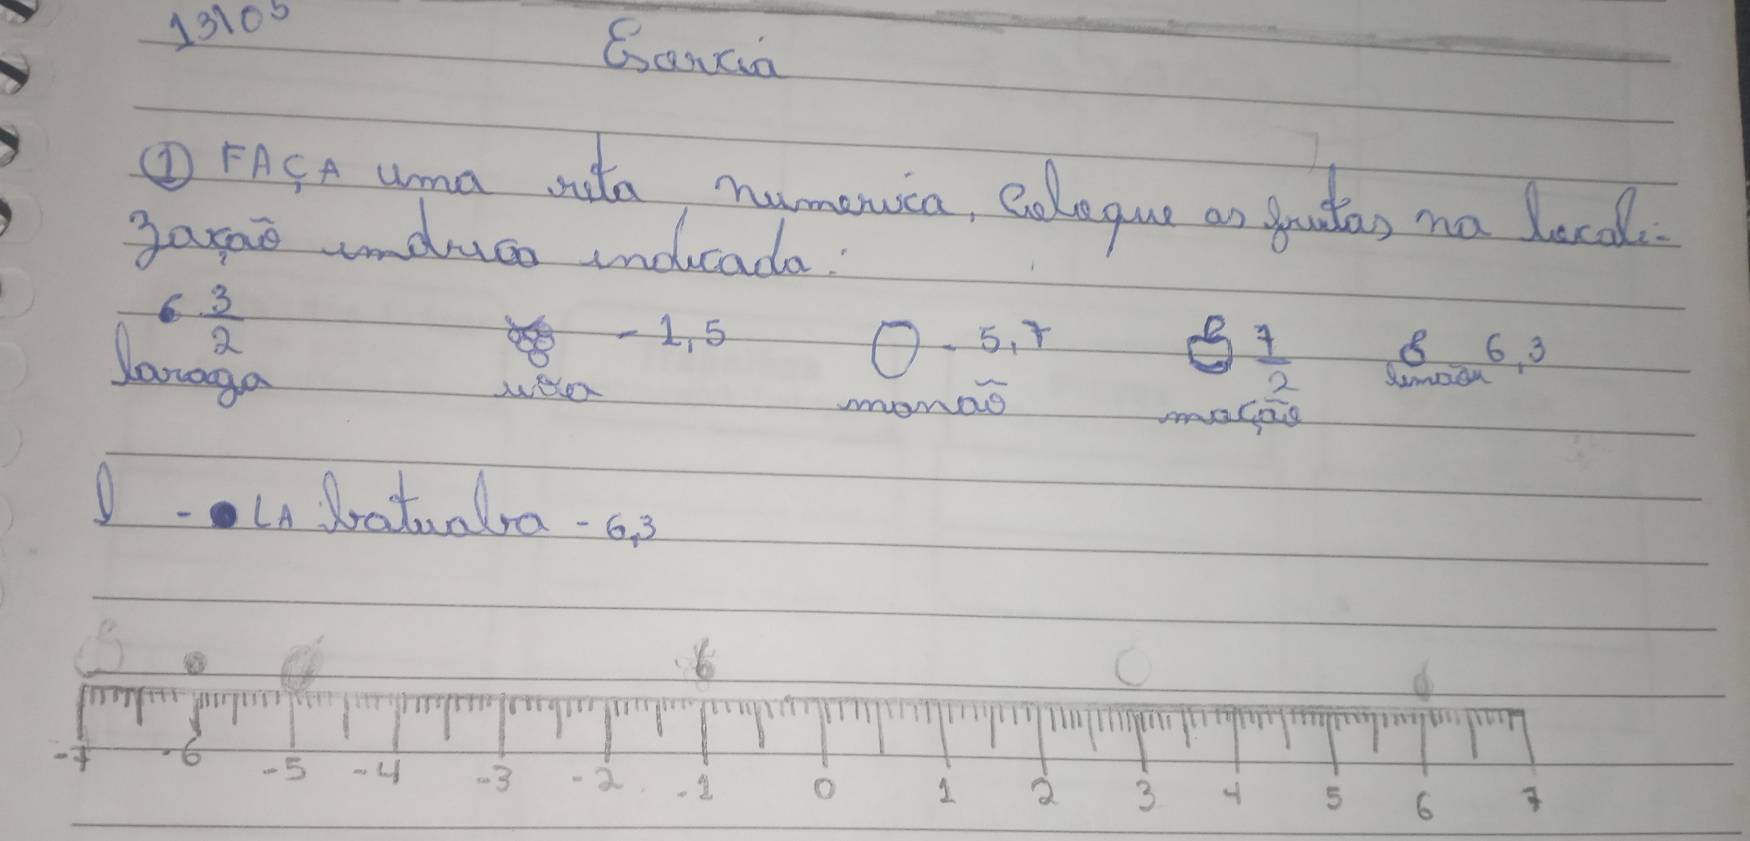 13/05
① FAÇA uma reta numerica, Coloque as frutas na locali-
zação indicada:
6 3/2 - 1,5 - 5,7 7/2 6,3
laraga uva mamão mação limão
- LA - 6,3
-7 -6 -5 -4 -3 -2 -1 0 1 2 3 4 5 6 7